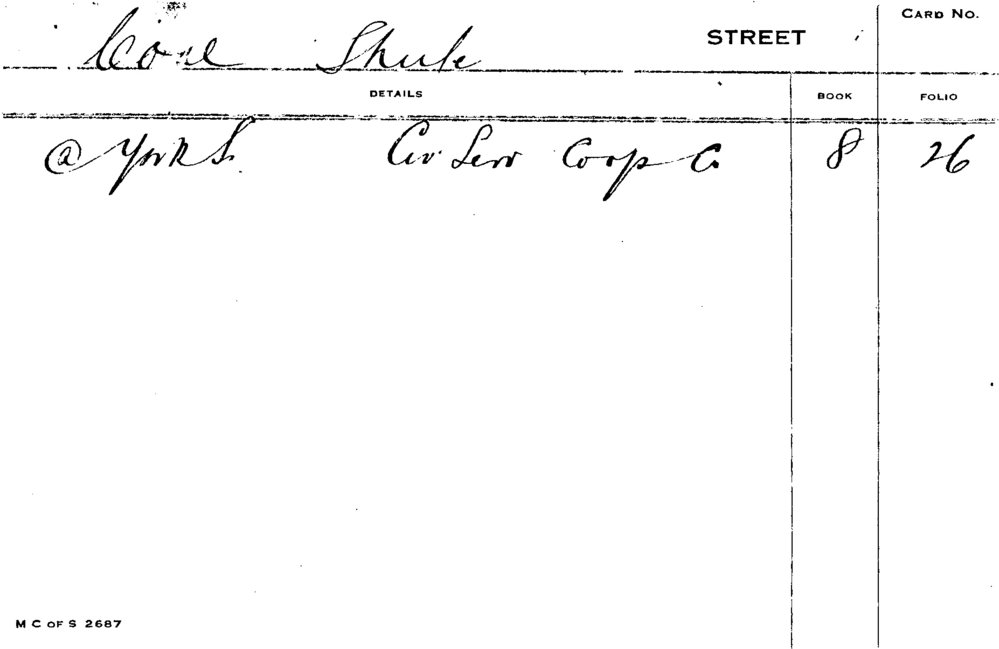 Coal Shute STREET
CARD NO.
DETAILS BOOK FOLIO
@ York S. Civ Serv Coop Co 8 26
M C OF S 2687